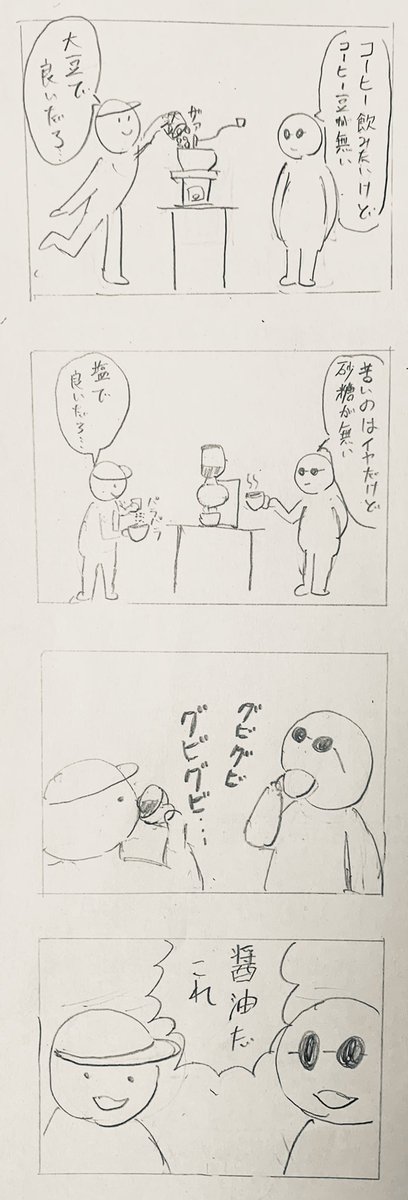 コーヒー飲みたいけど
コーヒー豆が無い
大豆で
良いだろ…
ザァ
苦いのはイヤだけど
砂糖が無い
塩で
良いだろ…
パラパラ
グビグビ
グビグビ…
醤油だ
これ